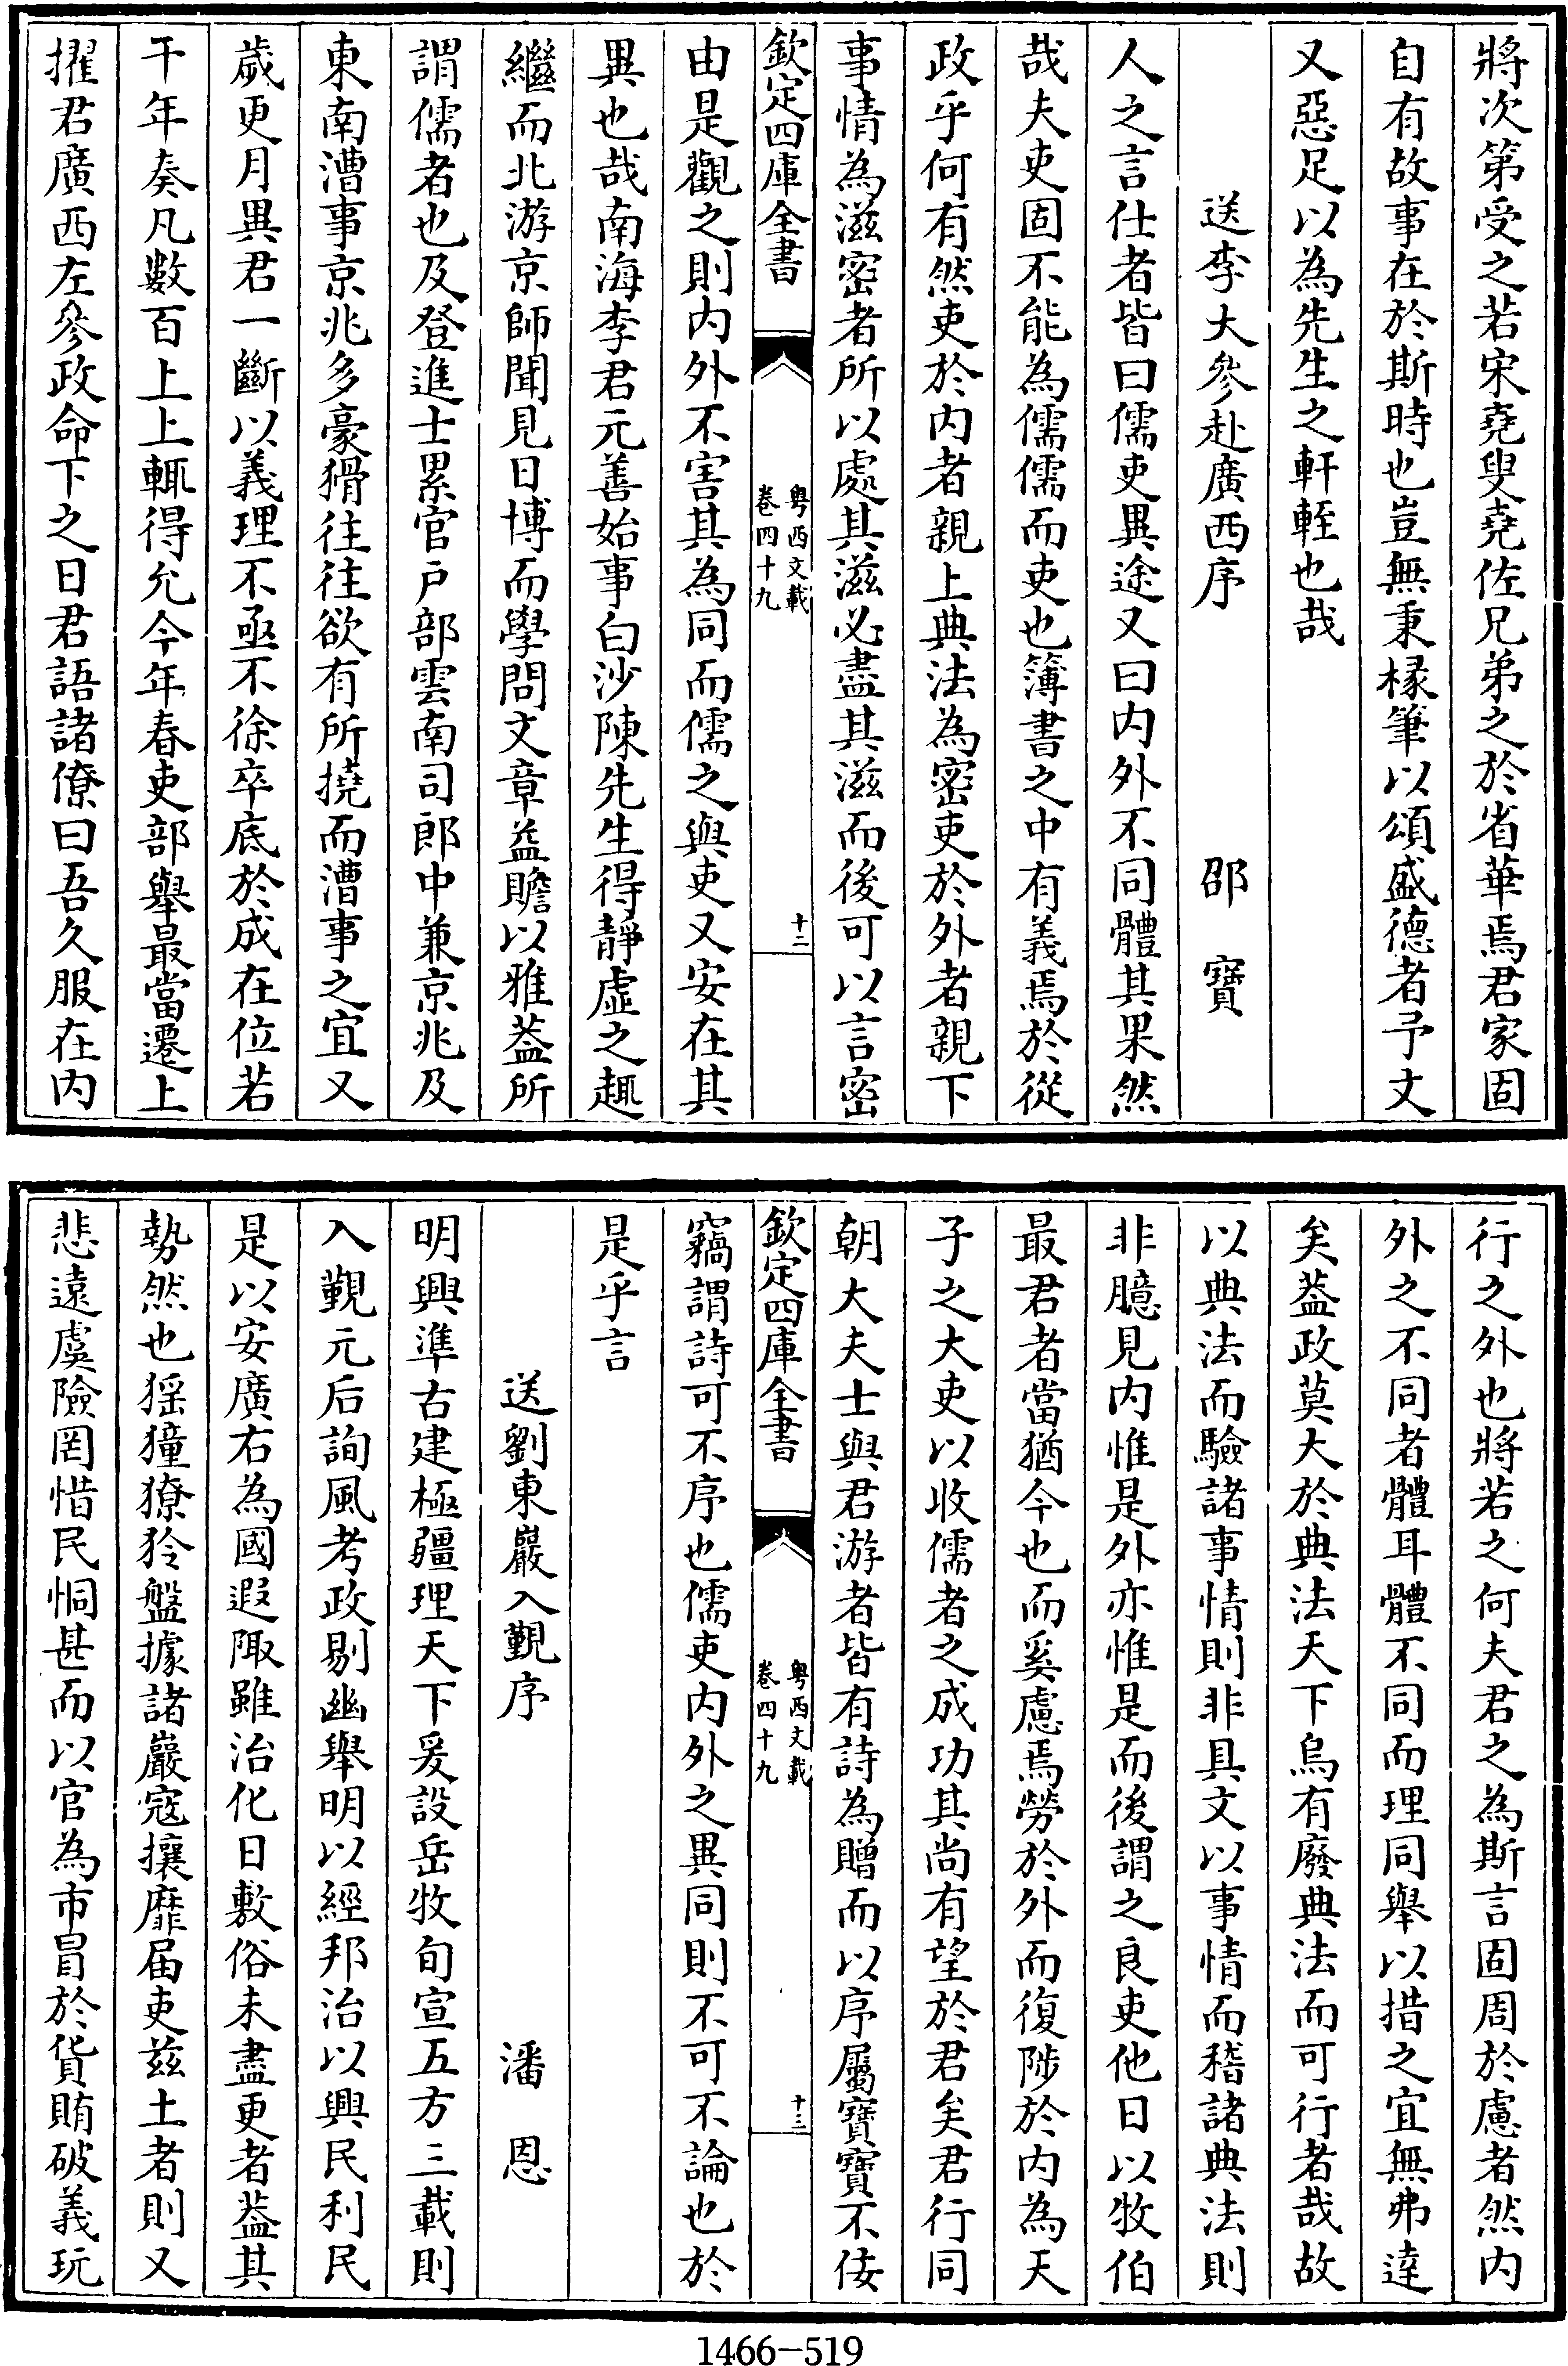 將次第受之若宋堯叟堯佐兄弟之於省華焉君家固
自有故事在於斯時也豈無秉椽筆以頌盛德者予文
又惡足以為先生之軒輊也哉
送李大參赴廣西序　邵寶
人之言仕者皆曰儒吏異途又曰内外不同體其果然
哉夫吏固不能為儒儒而吏也簿書之中有義焉於從
政乎何有然吏於内者親上典法為密吏於外者親下
事情為滋密者所以處其滋必盡其滋而後可以言密
欽定四庫全書
粤西文載
卷四十九
十二
由是觀之則内外不害其為同而儒之與吏又安在其
異也哉南海李君元善始事白沙陳先生得靜虛之趣
繼而北游京師聞見日博而學問文章益贍以雅葢所
謂儒者也及登進士累官户部雲南司郎中兼京兆及
東南漕事京兆多豪猾往往欲有所撓而漕事之宜又
歲更月異君一斷以義理不亟不徐卒底於成在位若
干年奏凡數百上上輒得允今年春吏部舉最當遷上
擢君廣西左參政命下之日君語諸僚曰吾久服在内
行之外也將若之何夫君之為斯言固周於慮者然内
外之不同者體耳體不同而理同舉以措之宜無弗達
矣葢政莫大於典法天下烏有廢典法而可行者哉故
以典法而驗諸事情則非具文以事情而稽諸典法則
非臆見内惟是外亦惟是而後謂之良吏他日以牧伯
最君者當猶今也而奚慮焉勞於外而復陟於内為天
子之大吏以收儒者之成功其尚有望於君矣君行同
朝大夫士與君游者皆有詩為贈而以序屬寶寶不佞
欽定四庫全書
粤西文載
卷四十九
十三
竊謂詩可不序也儒吏内外之異同則不可不論也於
是乎言
送劉東巖入覲序　潘恩
明興準古建極疆理天下爰設岳牧旬宣五方三載則
入覲元后詢風考政剔幽舉明以經邦治以興民利民
是以安廣右為國遐陬雖治化日敷俗未盡更者葢其
勢然也猺獞獠狑盤據諸巖寇攘靡屆吏兹土者則又
悲遠虞險罔惜民恫甚而以官為市冒於貨賄破義玩
1466-519